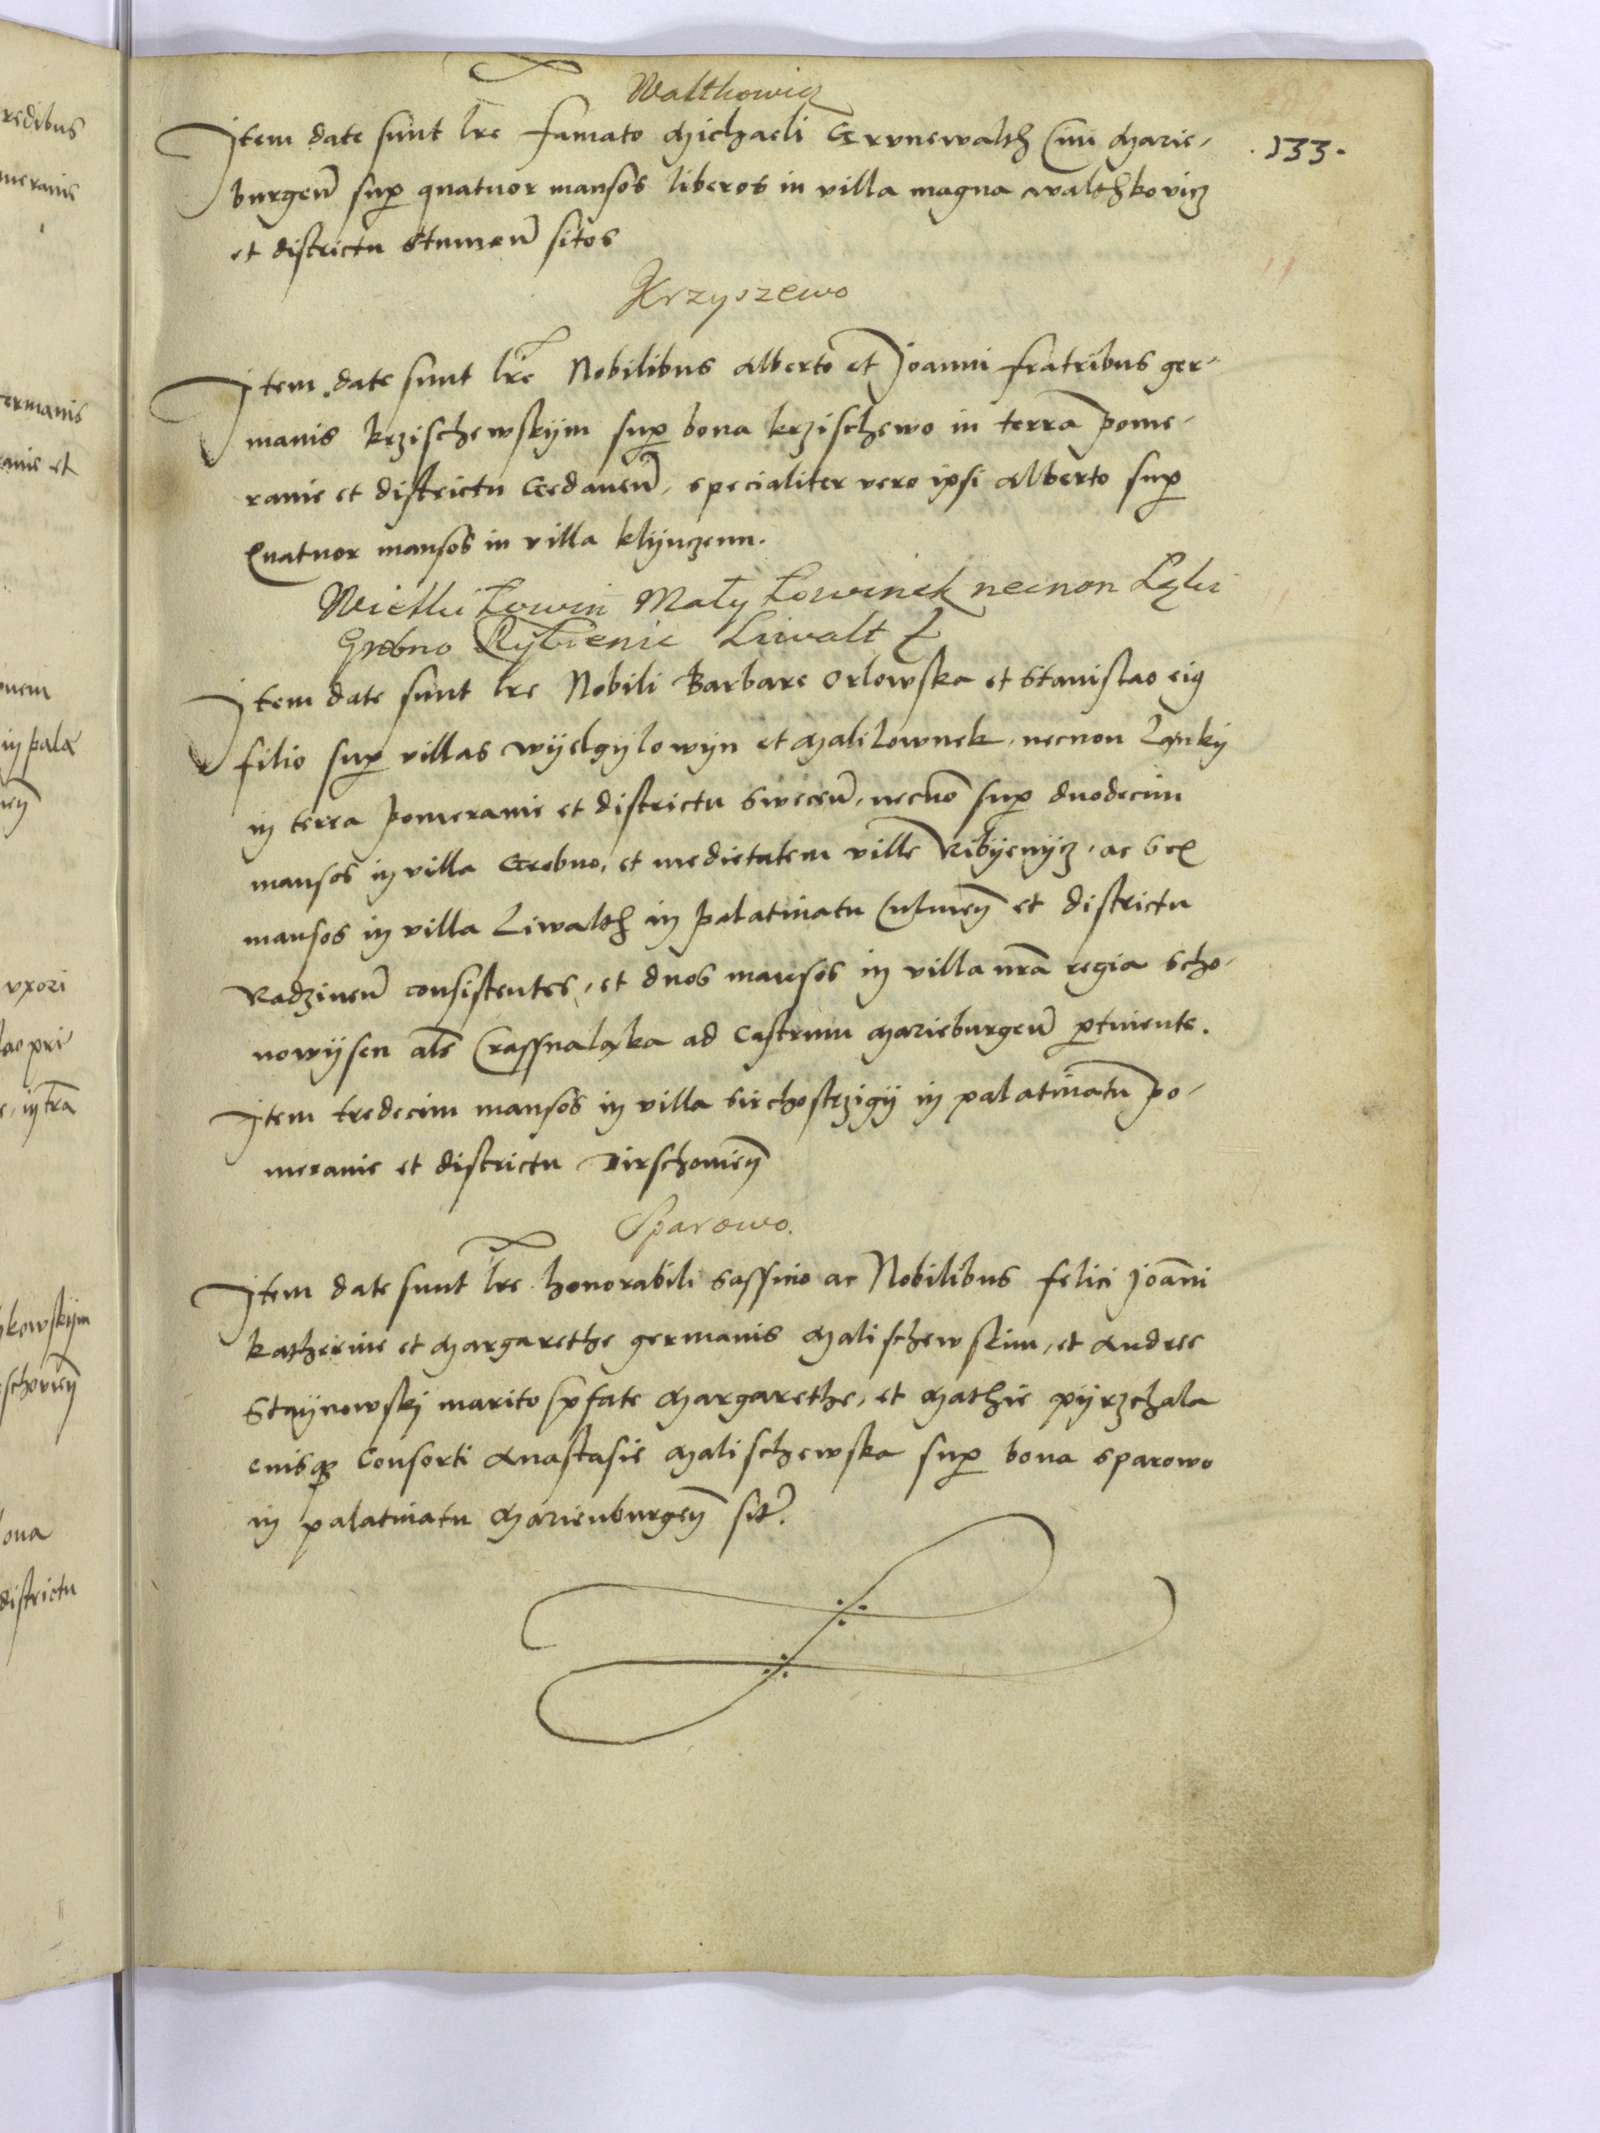 Walthowicz
Item date sunt lre famato Michaeli Grvnewalth Civi Marie-
.133.
burgeñ sup quatuor mansos liberos in villa magna walthkovicz
et districtu Stumeñ sitos
Krzyszewo
Item date sunt lre Nobilibus Alberto et Joanni fratribus ger-
manis krzischewskym sup bona krzischewo in terra pome-
ranie et districtu Gedaneñ, specialiter vero ipsi Alberto sup
Quatuor mansos in villa klynczenn.
Wielki Łowin Mały Łowinek necnon Ląki
Grebno Rybienic Liwalt
Item date sunt lre Nobili Barbare Orlowska et Stanislao eiꝰ
filio sup villas wyelgylowyn et Malilownek, necnon Lanky
in terra Pomeranie et districtu Sweceñ, necno sup duodecim
mansos in villa Grebno, et medietatem ville Ribyenycz, ac Sex
mansos in villa Liwalth in palatinatu Culmeñ et districtu
Radzineñ consistentes, et duos mansos in villa nra regia Scho-
nowysen als Crassnaląka ad Castrum Marieburgeñ ptinente.
Item tredecim mansos in villa Sirchostrzigy in palatinatu po-
meranie et districtu Dirschovieñ
Sparowo.
Item date sunt lre honorabili Sassinio ac Nobilibus felici Joanni
katherine et Margarethe germanis Malischewskim, et Andree
Staynowskj marito pfate Margarethe, et Mathie pyrzchala
eiusqꝫ Consorti Anastasie Malischewska sup bona Sparowo
in palatinatu Marienburgeñ sit.